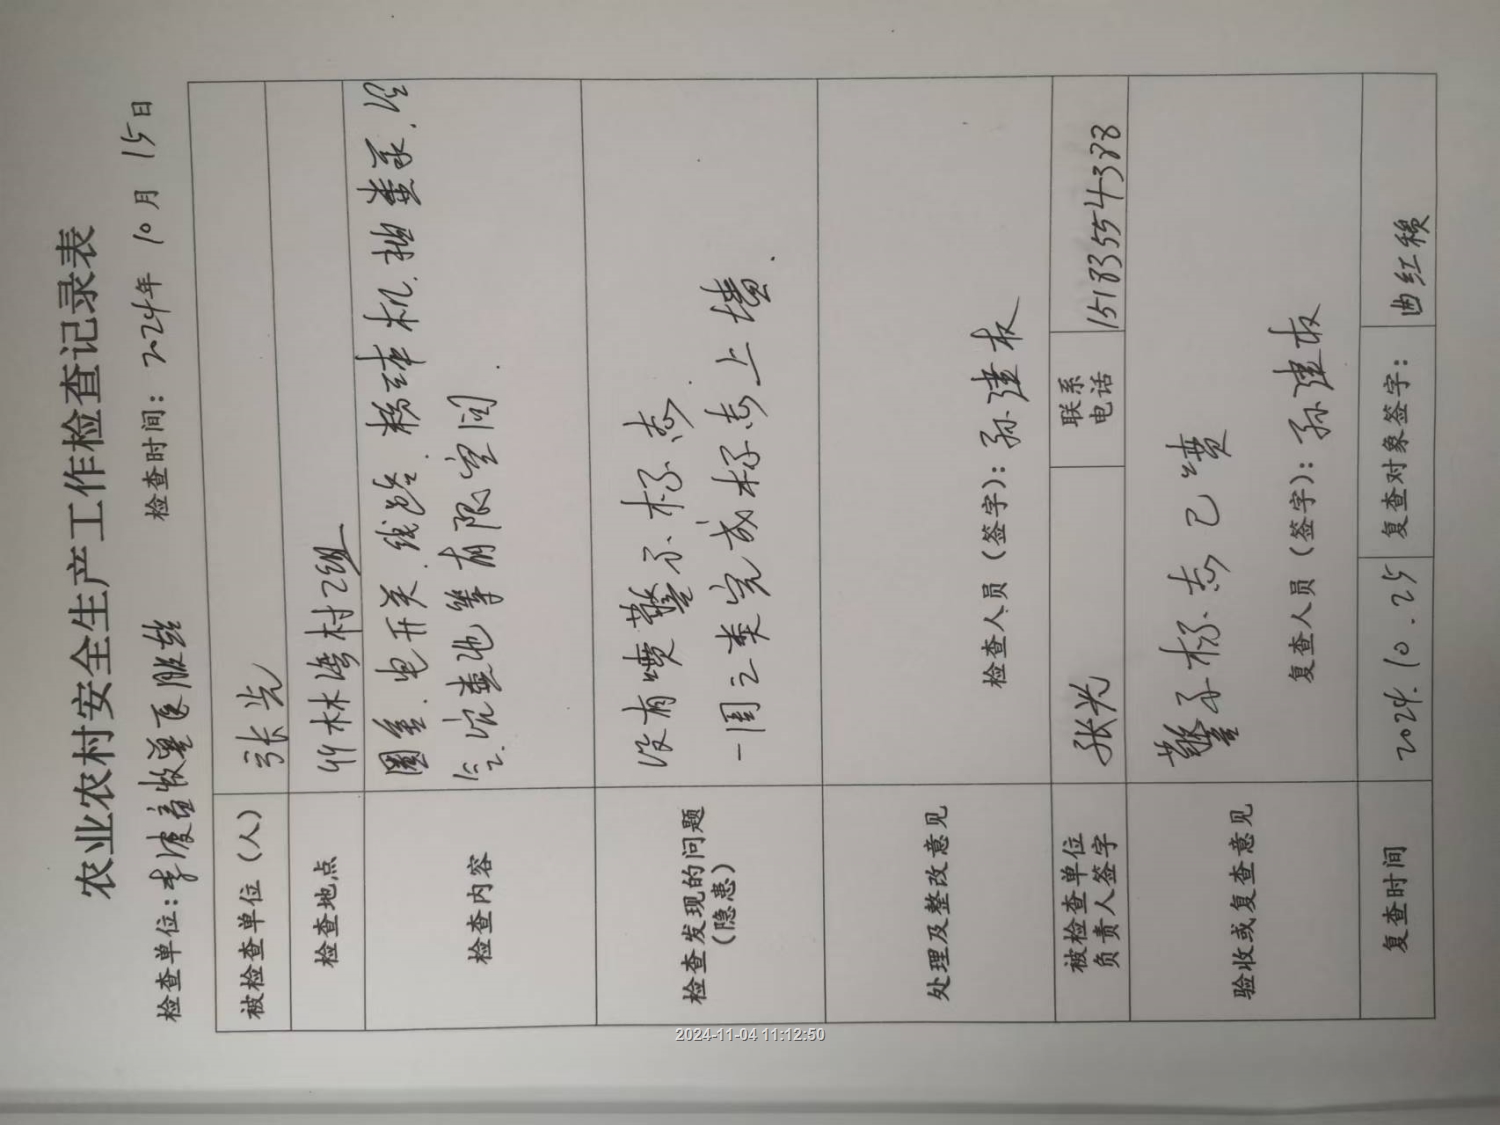 农业农村安全生产工作检查记录表
检查单位: 畜牧兽医服 检查时间: 2024年 10月 15日
被检查单位（人） 张光
检查地点 竹林湾村2组
检查内容 圈舍.电开关.线路.粉碎机.抽粪泵.
粪池等有限空间.
检查发现的问题（隐患） 没有喷警示标志.
一周之类完成标志上墙.
处理及整改意见
检查人员（签字）: 孙建权
被检查单位负责人签字 张光 联系电话 15183554388
验收或复查意见 警示标志已喷
复查人员（签字）: 孙建权
复查时间 2024.10.25 复查对象签字: 曲红
2024-11-04 11:12:50